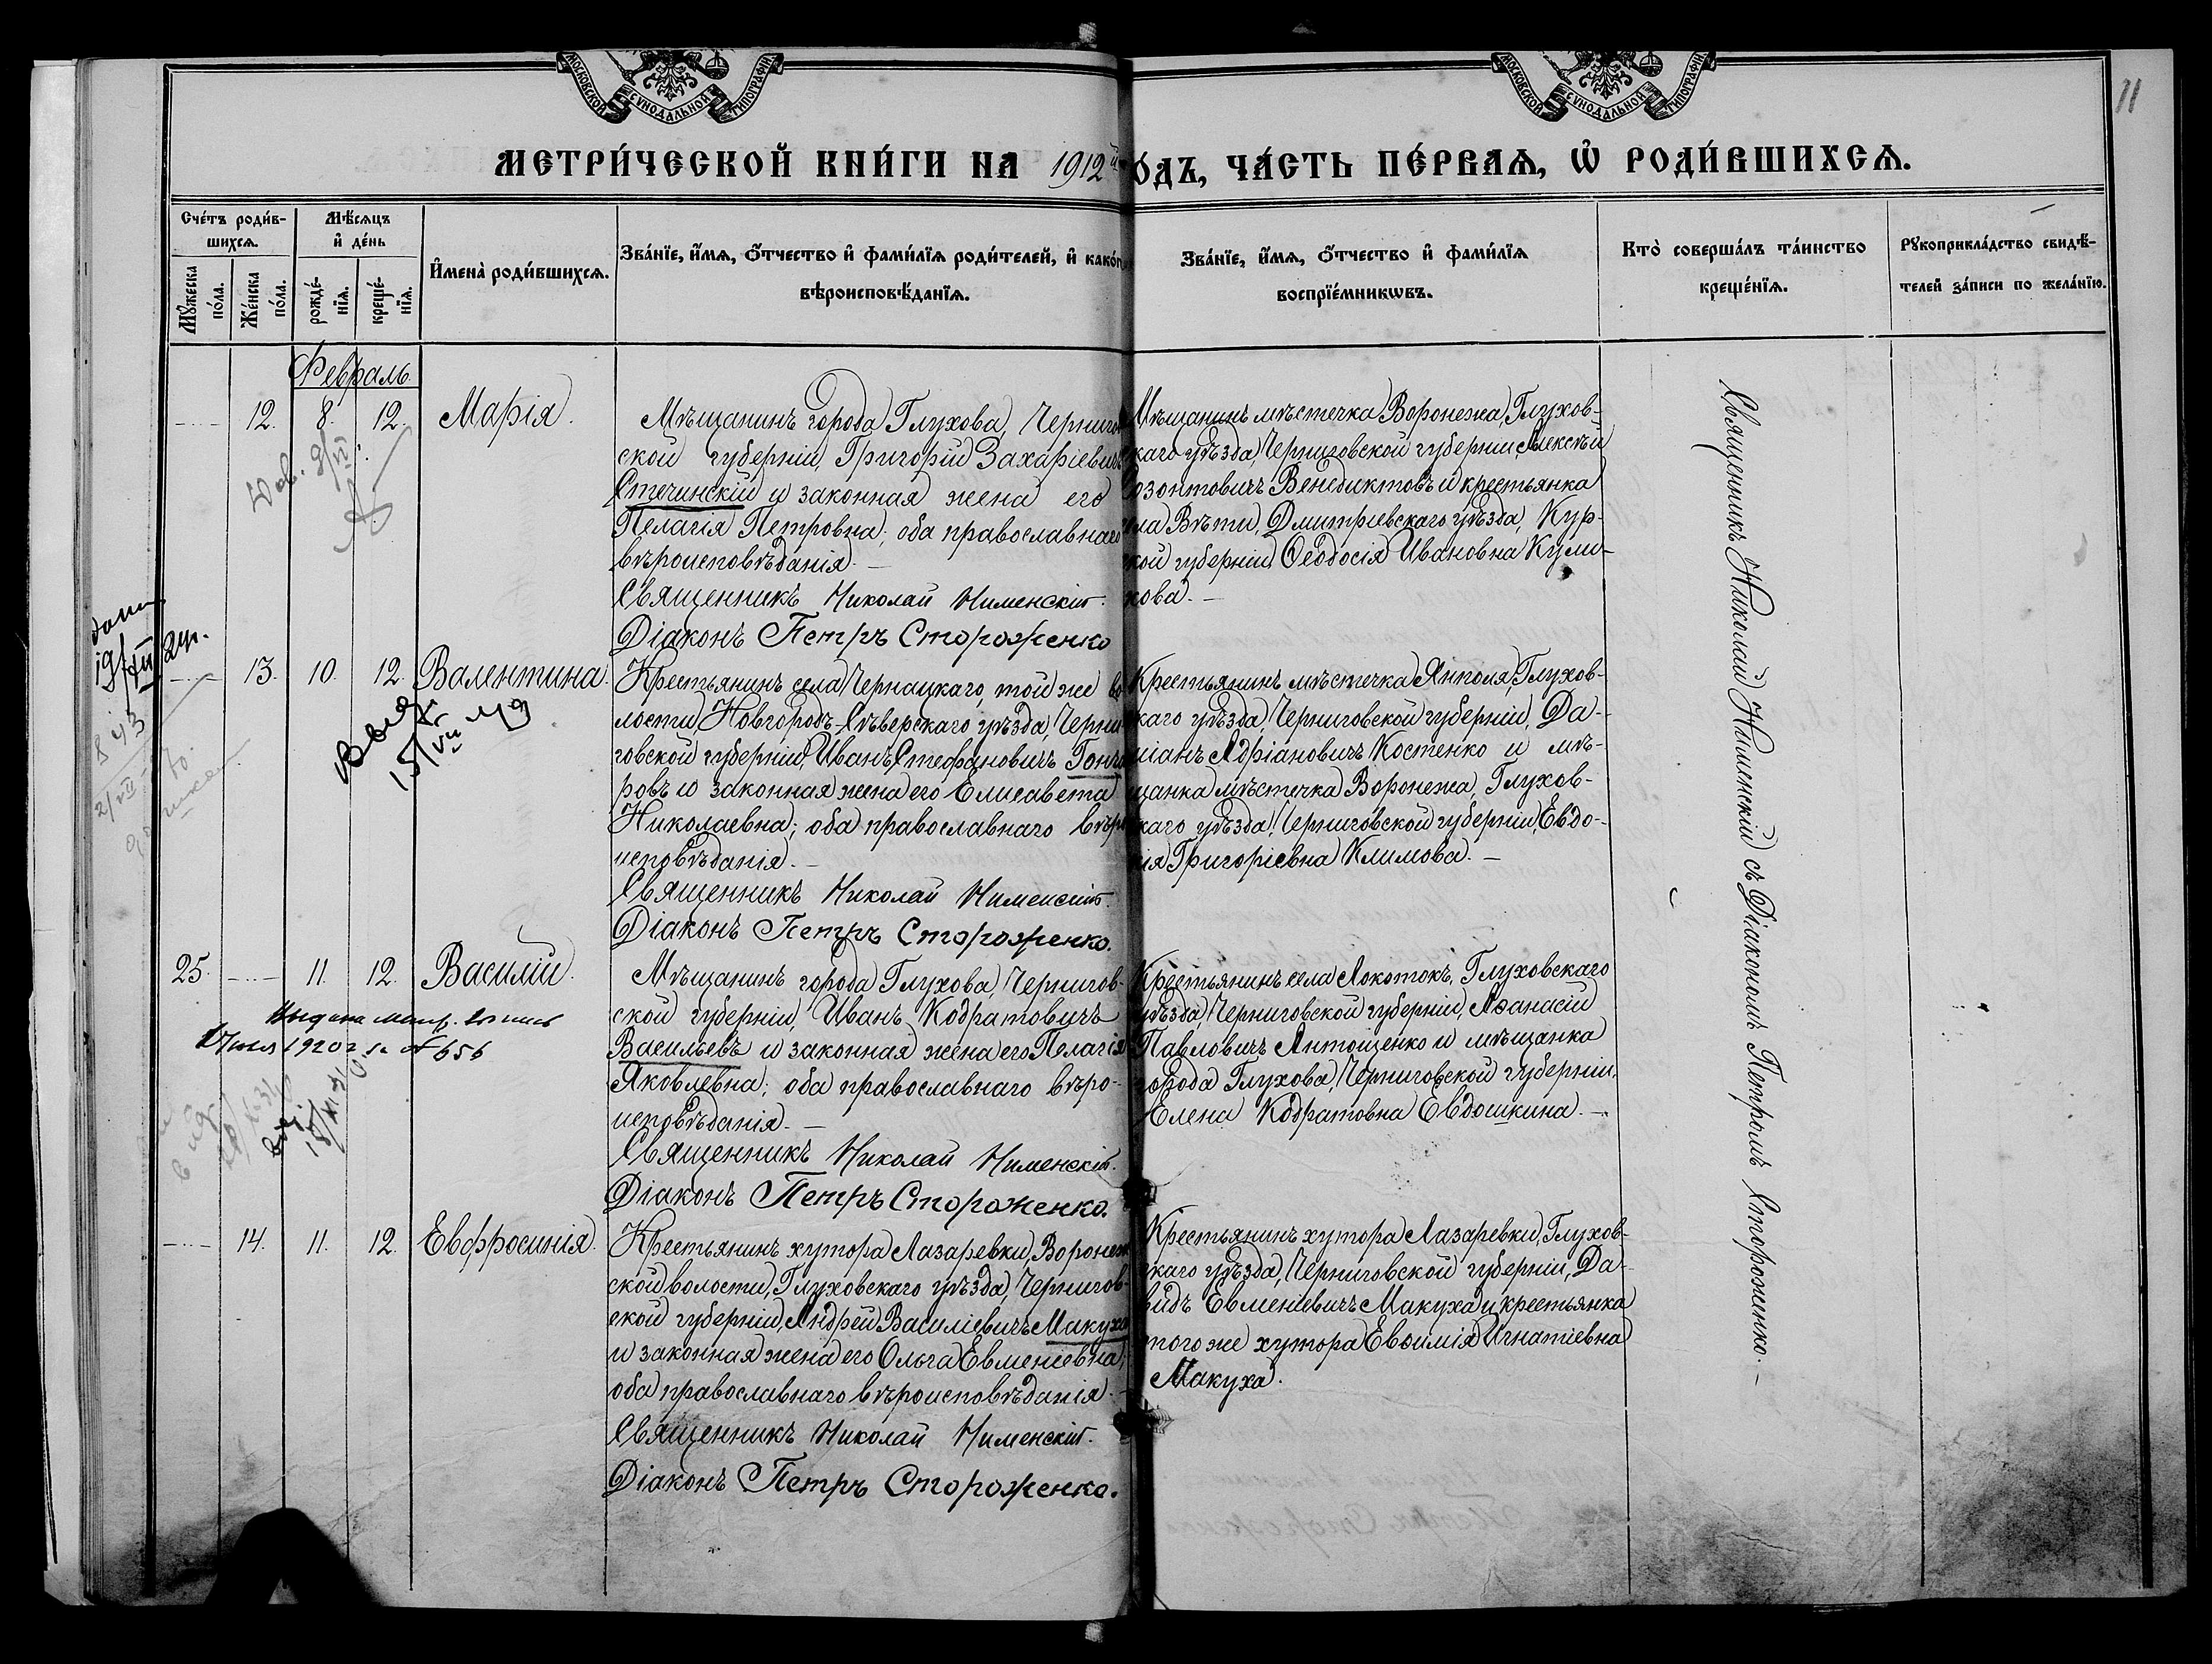 МОСКОВСКОЙ СѴНОДАЛЬНОЙ ТИПОГРАФІИ
МОСКОВСКОЙ СѴНОДАЛЬНОЙ ТИПОГРАФІИ
11
МЕТРИ́ЧЕСКОЙ КНИ́ГИ НА 1912й
О́ДЪ, ЧА́СТЬ ПЕ́РВАѦ, Ѡ҆ РОДИ́ВШИХСѦ.
Сче́тъ роди́в-
шихсѧ.
Мꙋ́жеска
по́ла.
Же́нска
по́ла.
Мѣ́сѧцъ
и҆ де́нь
рожде́-
нїѧ.
креще́-
нїѧ.
И҆мена̀ роди́вшихсѧ.
Зва́нїе, и҆́мѧ, ѻ҆́тчество и҆ фами́лїѧ роди́телей, и҆ како́г
вѣроисповѣ́данїѧ.
Зва́нїе, и҆́мѧ, ѻ҆́тчество и҆ фами́лїѧ
воспрїе́мникѡвъ.
Кто̀ соверша́лъ та́инство
креще́нїѧ.
Рꙋкоприкла́дство свидѣ́-
телей за́писи по жела́нїю.
Февраль
12. 8. 12. Марія.
Мѣщанинъ города Глухова, Черниго
ской губерніи, Григорій Захаріевичъ
Стечинскій и законная жена его
Пелагія Петровна; оба православнаго
вѣроисповѣданія. —
Священникъ Николай Нименскій.
Діаконъ Петръ Стороженко
Мѣщанинъ мѣстечка Воронежа, Глухов-
скаго уѣзда, Черниговской губерніи, Алексѣй
озонтовичъ Венедиктовъ и крестьянка
ела Вѣти, Дмитріевскаго уѣзда, Кур-
ской губерніи, Ѳеодосія Ивановна Кули-
кова. —
13. 10. 12. Валентина.
Крестьянинъ села Чернацкаго, той же во
лости, Новгородъ-Сѣверскаго уѣзда, Черни
говской губерніи, Иванъ Стефановичъ Гонча
ровъ и законная жена его Елисавета
Николаевна; оба православнаго вѣро
исповѣданія. —
Священникъ Николай Нименскій.
Діаконъ Петръ Стороженко.
Крестьянинъ мѣстечка Янполя, Глухов-
скаго уѣзда, Черниговской губерніи, Да-
міанъ Адріановичъ Костенко и мѣ-
щанка мѣстечка Воронежа, Глухов-
скаго уѣзда, Черниговской губерніи, Евдо-
кія Григоріевна Климова. —
25. 11. 12. Василій.
Мѣщанинъ города Глухова, Чернигов-
ской губерніи, Иванъ Кодратовичъ
Васильевъ и законная жена его Пелагія
Яковлевна; оба православнаго вѣро-
исповѣданія. —
Священникъ Николай Нименскій.
Діаконъ Петръ Стороженко.
Крестьянинъ села Локотокъ, Глуховскаго
уѣзда, Черниговской губерніи, Аѳанасій
Павловичъ Антощенко и мѣщанка
города Глухова, Черниговской губерніи,
Елена Кодратовна Евдошкина. —
14. 11. 12. Евфросинія.
Крестьянинъ хутора Лазаревки, Воронеж
ской волости, Глуховскаго уѣзда, Чернигов-
ской губерніи, Андрей Василіевичъ Макуха
и законная жена его Ольга Евменіевна;
оба православнаго вѣроисповѣданія. —
Священникъ Николай Нименскій.
Діаконъ Петръ Стороженко.
Крестьянинъ хутора Лазаревки, Глухов-
скаго уѣзда, Черниговской губерніи, Да-
видъ Евменіевичъ Макуха и крестьянка
того же хутора Евѳимія Игнатіевна
Макуха.
Священникъ Николай Нименскій съ Діакономъ Петромъ Стороженко. —
15/VII
1920 г. № 656